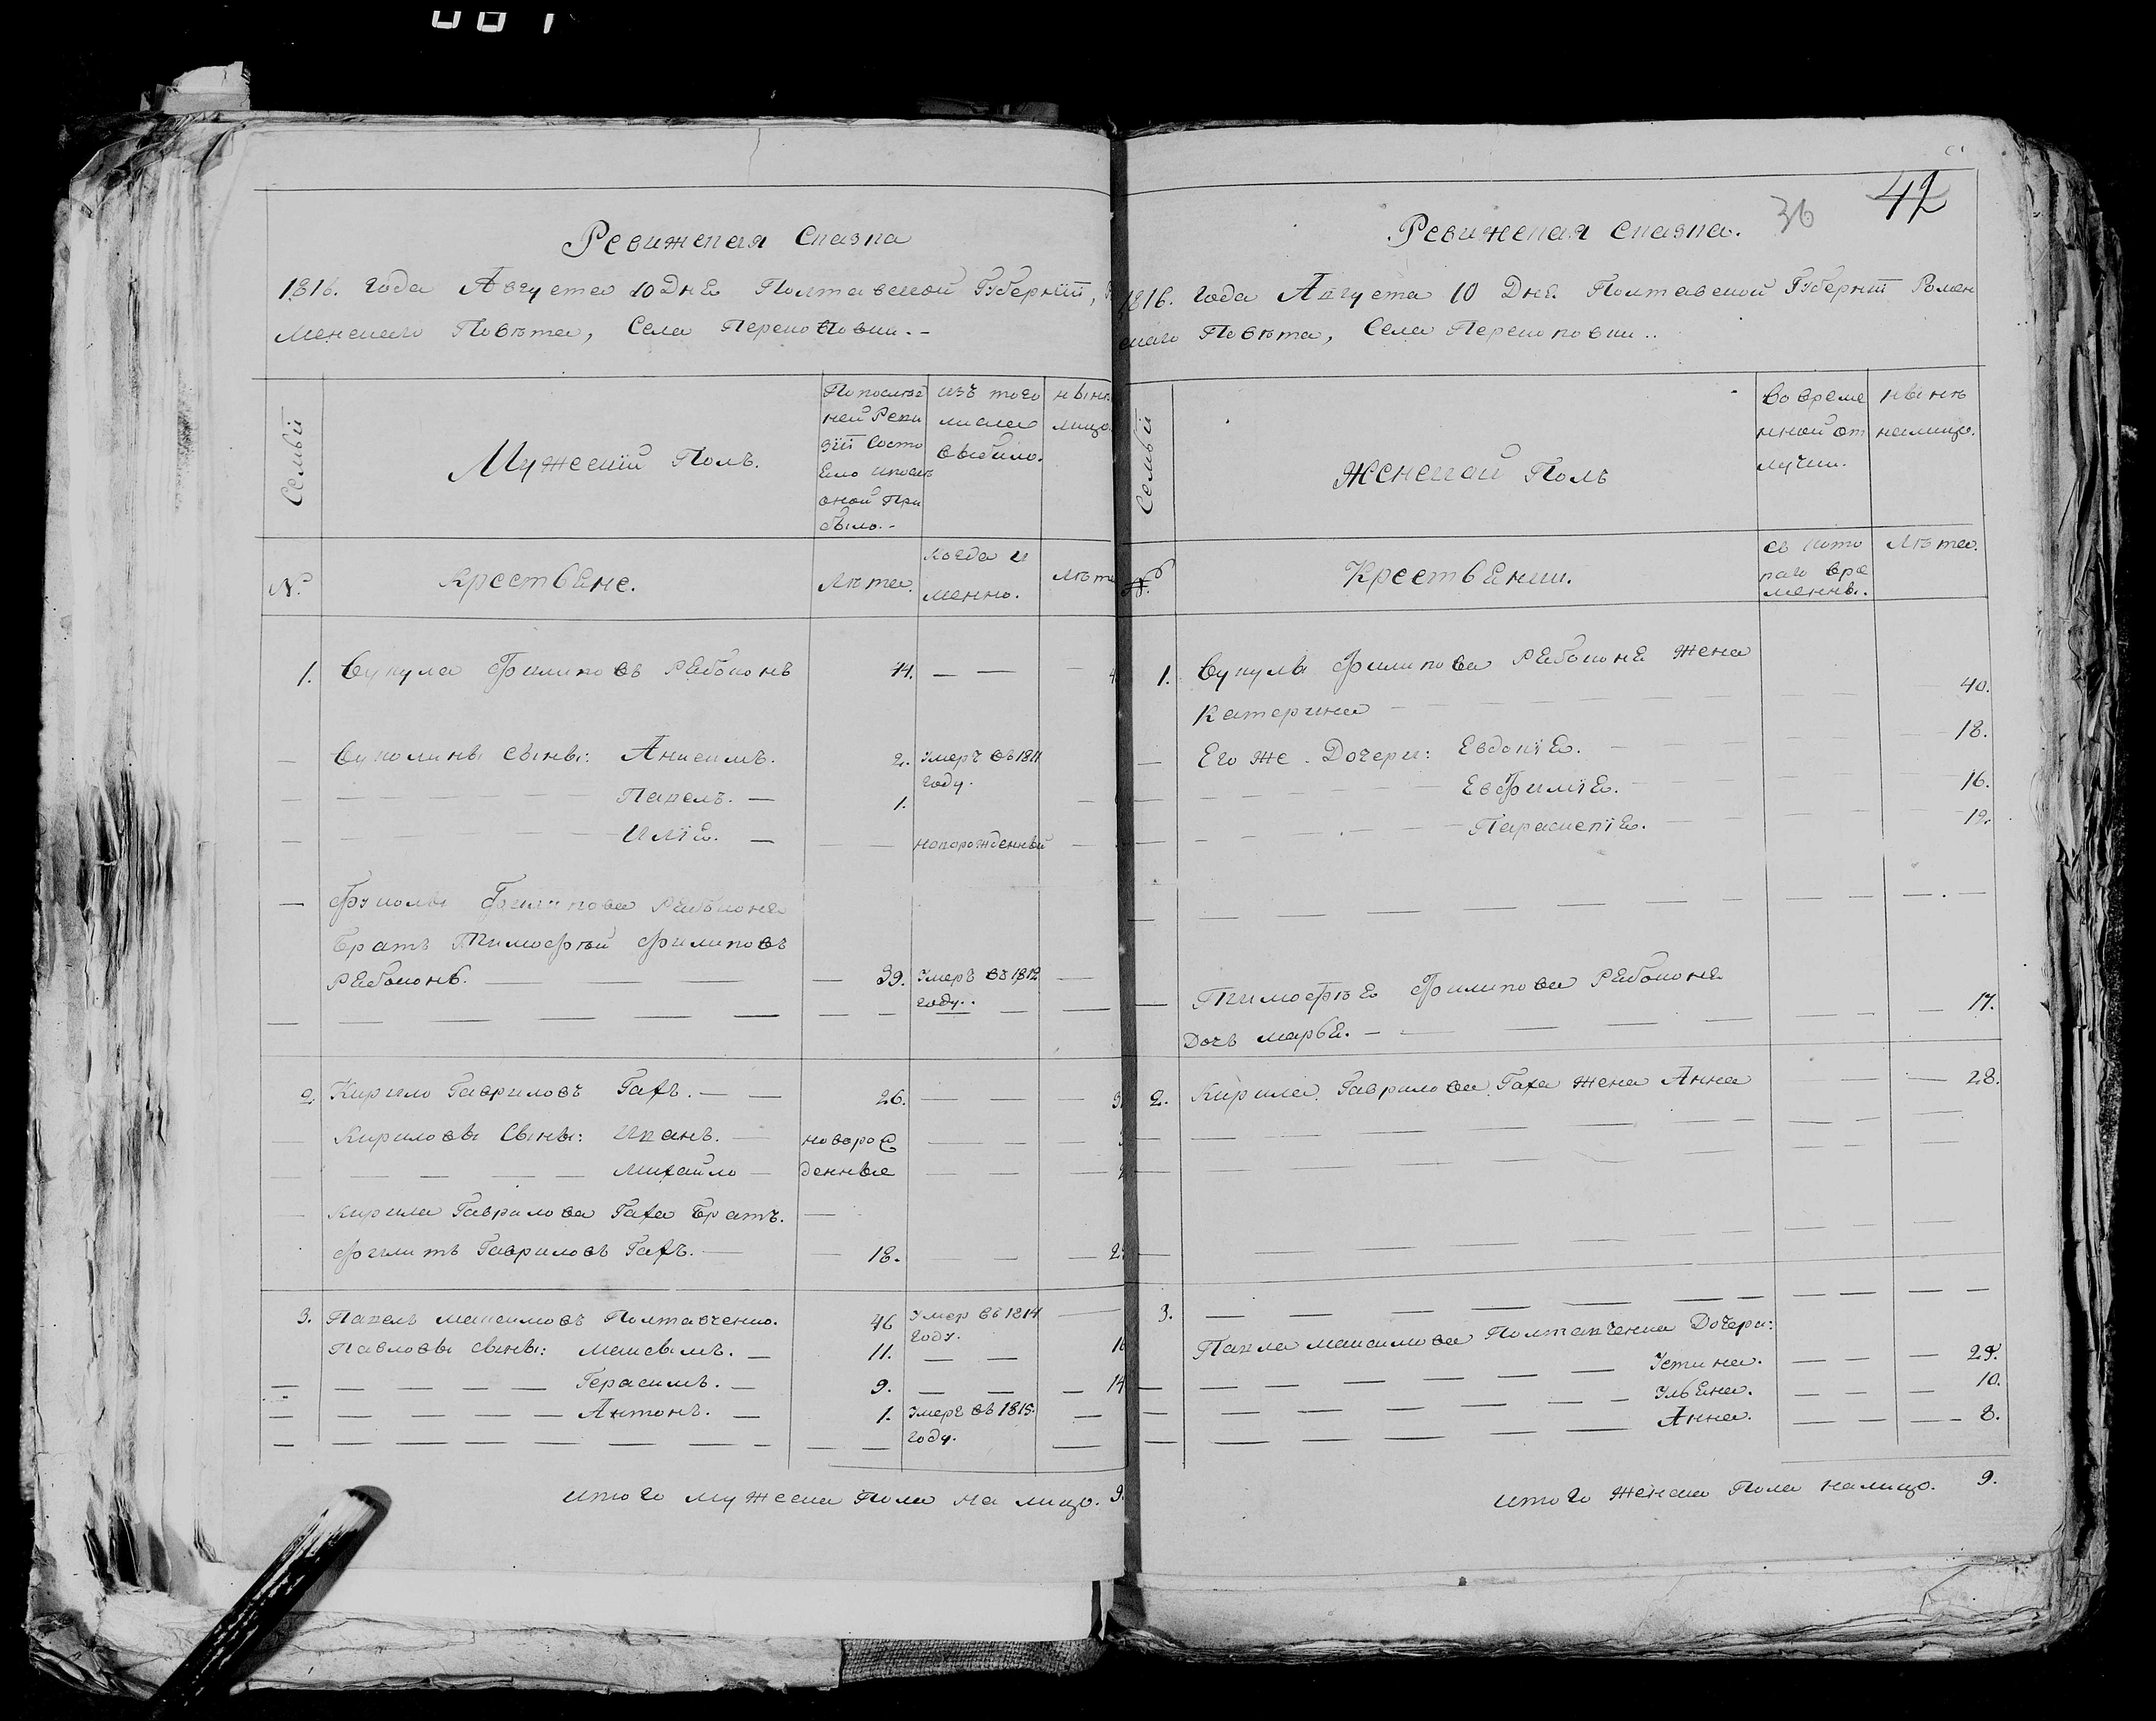 Ревижская Сказка
1816. года Августа 10 Дня Полтавской Губерніи,
менскаго Повѣта, Села Перекоповки. -
Семьи
Мужескій Полъ.
По послѣд
ней Реви
зіи Состо
яло и послѣ
оной При
было. -
изъ того
числа
выбыло.
нынѣ
лицо.
№
Крестьяне.
Лѣта.
когда и
менно.
Лѣта
1. Вукула Филиповъ Рябоконь 44. — —
— Вуколины сыны: Анисимъ. 2. Умеръ въ 1811
году.
Павелъ. — 1.
Илія. — новорожденный
— Вуколы Филипова Рябоконя
братъ Тимофѣй Филиповъ
Рябоконь. 39. Умеръ въ 1812
году.
2. Кирило Гавриловъ Гахъ. — 26.
Кириловы Сыны: Иванъ. — новорож
Михайло — денные
Кирила Гаврилова Гаха братъ.
Филипъ Гавриловъ Гахъ. — 18.
3. Павелъ Максимовъ Полтавченко. 46 Умер въ 1814
году.
Павловы сыны: Максымъ. — 11. — —
Герасимъ. — 9. — — 14
Антонъ. — 1. Умеръ въ 1815.
году.
итого мужеска Пола на лицо. 9.
36 42
Ревижская сказка.
1816. года Августа 10 Дня Полтавской Губерніи Ромен
скаго Повѣта, Села Перекоповки..
Семьи
Женскай Полъ
Во време
нной от
лучки.
нынѣ
налицо.
№
Крестьянки.
съ кото
раго вре
мены.
Лѣта.
1. Вукулы Филипова Рябоконя жена
Катерина 40.
— Его же Дочери: Евдокія. 18.
Евфимія. 16.
Параскевія. 12.
— Тимофѣя Филипова Рябоконя
Дочь Марья. 17.
2. Кирила Гаврилова Гаха жена Анна 28.
3.
Павла Максимова Полтавченка Дочери:
Устина. 29.
Ульяна. 10.
Анна. 8.
итого женска Пола налицо. 9.